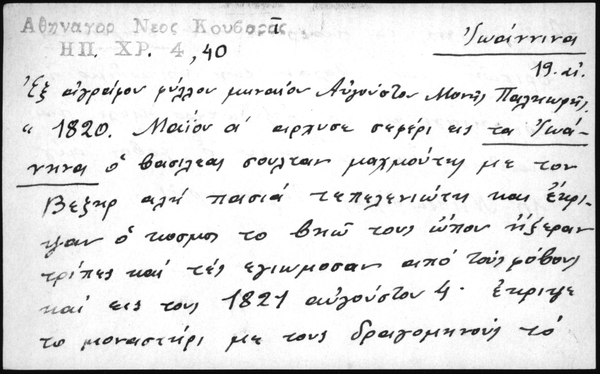 Αθηναγορ Νεος Κουβαρᾶς
ΗΠ. ΧΡ. 4 , 40
Ἰωάννινα
19. αἰ.
Ἐξ ἀγράφου φύλλου μηναίου Αὐγούστου Μονῆς Παλιωρῆς,
" 1820. Μαΐου α΄ αρχησε σεφέρι εις τα Ἰωά-
νηνα ὁ βασιλεας σουλταν μαχμούτης με τον
Βεζηρ αλή πασιά τεπελενιώτη και ἔκρι-
ψαν ὁ κοσμος το βηῶ τους ὡπου ἠξεραν
τρίπες και τές εγιωμοσαν από τούς φόβους
καί εις τους 1821 αυγούστου 4· ἔκριψε
το μοναστήρι με τους δραγομηνούς τό